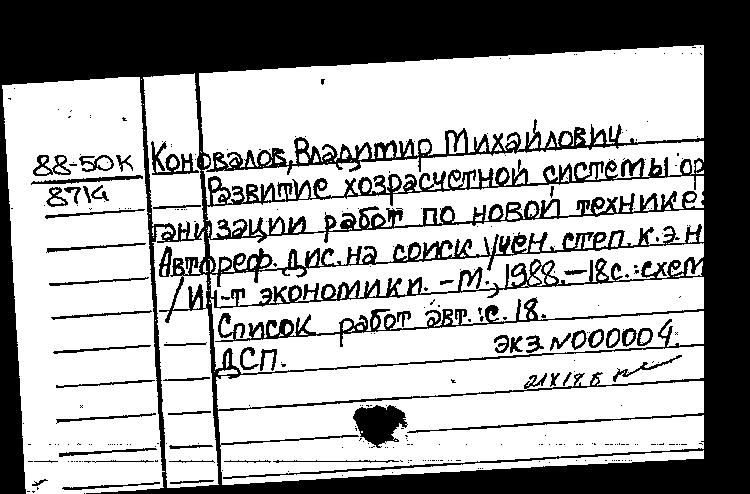 88-50К
8714
Коновалов, Владимир Михайлович.
Развитие хозрасчетной системы ор
ганизации работ по новой технике:
Автореф. дис. на соиск. учен. степ. к.э.н
/ Ин-т экономики. – М., 1988. – 18с.: схем
Список работ авт.: с. 18.
ДСП. экз. N000004.